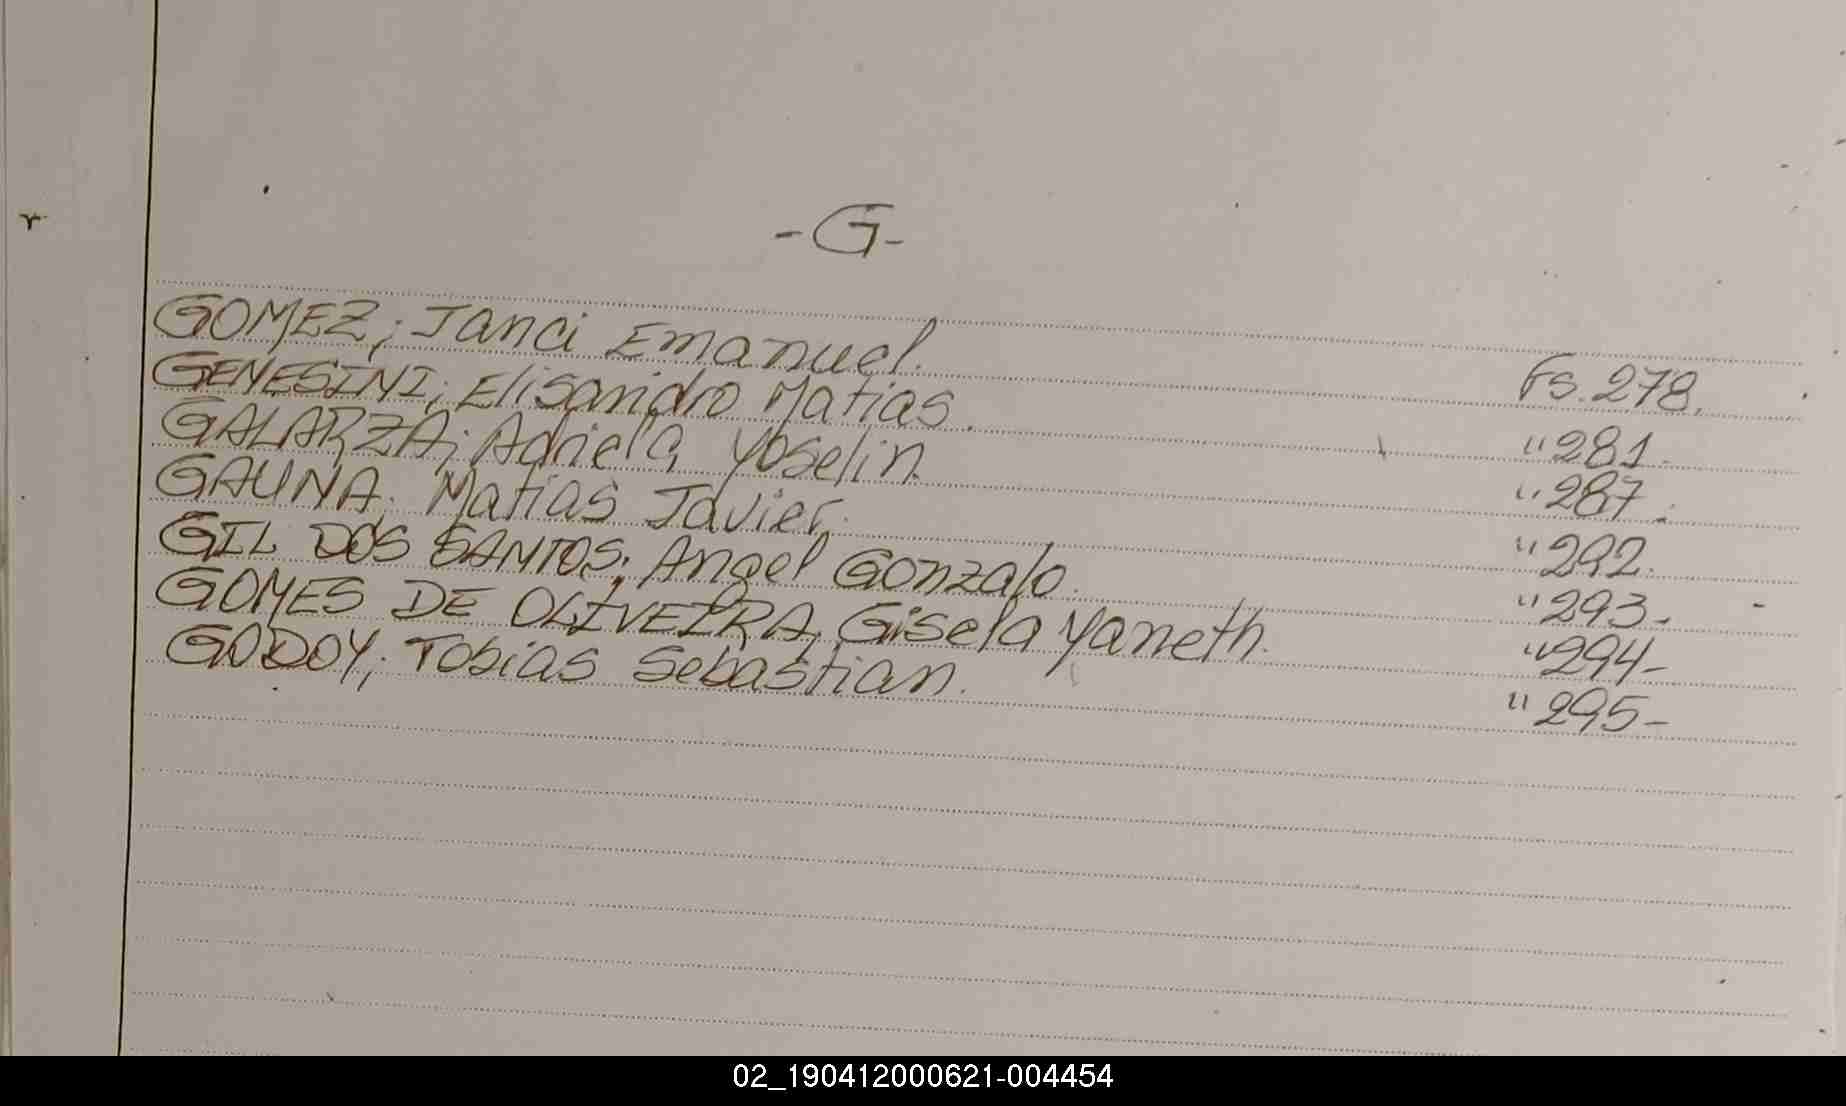 -G-
GOMEZ; Janci Emanuel. Fs. 278.
GENESINI; Elisandro Matias. " 281.
GALARZA; Adriela Yoselin. " 287.
GAUNA. Matias Javier. " 292.
GIL DOS SANTOS; Angel Gonzalo. " 293-
GOMES DE OLIVEIRA, Gisela Yaneth. " 294-
GODOY; Tobias Sebastian. " 295-
02_190412000621-004454